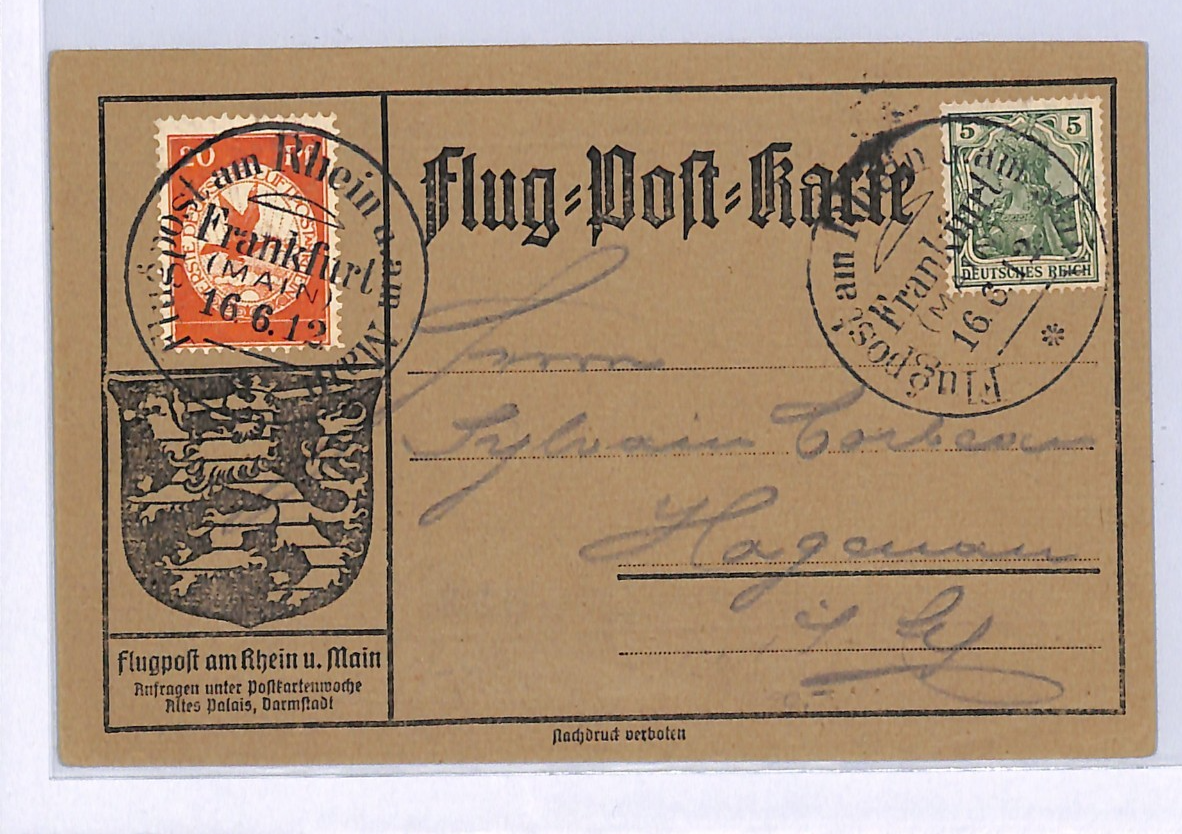 20 Pf
Flugpost am Rhein u. am Main
Frankfurt
(MAIN)
16.6.12
Flug=Post=Karte
5 5
DEUTSCHES REICH
Flugpost am Rhein u. am Main
Frankfurt
(MAIN)
16.6.12
*
Herrn
Sylvain
Hagenau
i/
Flugpost am Rhein u. Main
Anfragen unter Postkartenwoche
Altes Palais, Darmstadt
Nachdruck verboten